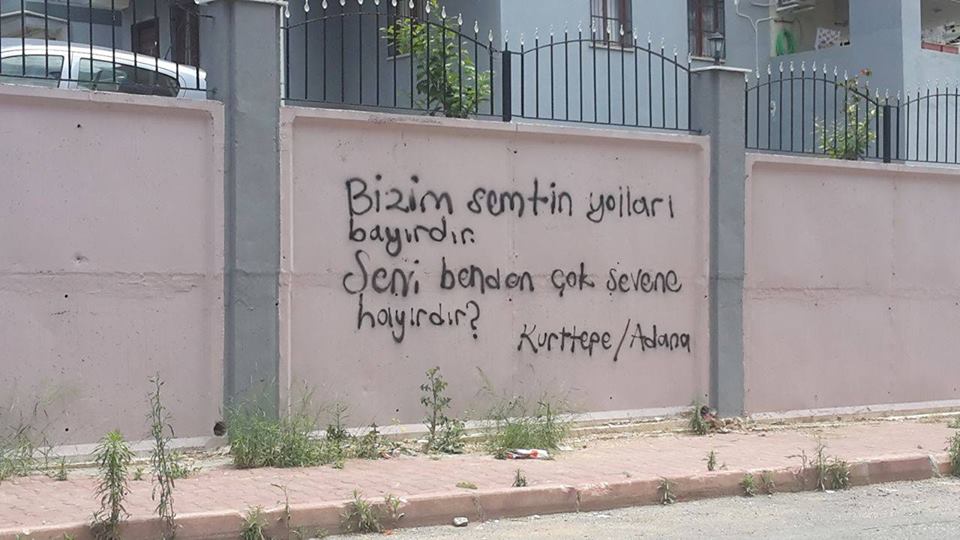 Bizim semtin yolları
bayırdır.
Seni benden çok sevene
hayırdır?
Kurttepe/Adana